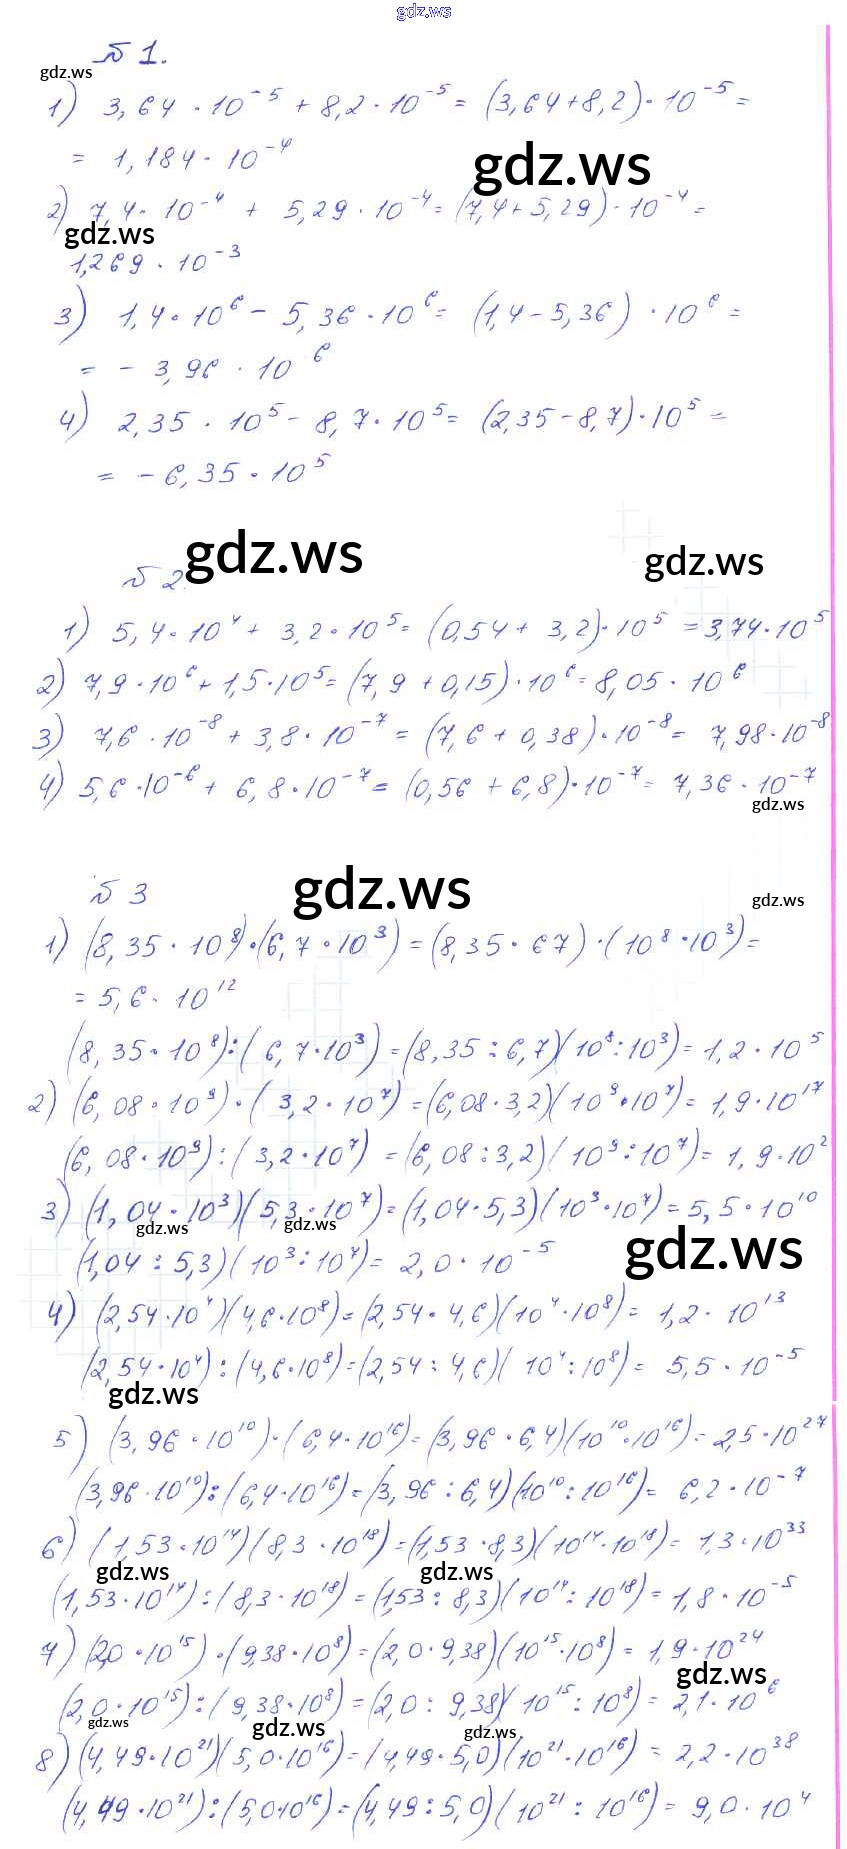 gdz.ws
№ 1.
gdz.ws
1) 3,64 · 10⁻⁵ + 8,2 · 10⁻⁵ = (3,64+8,2) · 10⁻⁵ =
= 1,184 · 10⁻⁴
gdz.ws
2) 7,4 · 10⁻⁴ + 5,29 · 10⁻⁴ = (7,4+5,29) · 10⁻⁴ =
gdz.ws
1,269 · 10⁻³
3) 1,4 · 10⁶ − 5,36 · 10⁶ = (1,4 − 5,36) · 10⁶ =
= − 3,96 · 10⁶
4) 2,35 · 10⁵ − 8,7 · 10⁵ = (2,35 − 8,7) · 10⁵ =
= − 6,35 · 10⁵
gdz.ws
gdz.ws
№ 2.
1) 5,4 · 10⁴ + 3,2 · 10⁵ = (0,54 + 3,2) · 10⁵ = 3,74 · 10⁵
2) 7,9 · 10⁶ + 1,5 · 10⁵ = (7,9 + 0,15) · 10⁶ = 8,05 · 10⁶
3) 7,6 · 10⁻⁸ + 3,8 · 10⁻⁷ = (7,6 + 0,38) · 10⁻⁸ = 7,98 · 10⁻⁸
4) 5,6 · 10⁻⁶ + 6,8 · 10⁻⁷ = (0,56 + 6,8) · 10⁻⁷ = 7,36 · 10⁻⁷
gdz.ws
№ 3
gdz.ws
gdz.ws
1) (8,35 · 10⁸) · (6,7 · 10³) = (8,35 · 67) · (10⁸ · 10³) =
= 5,6 · 10¹²
(8,35 · 10⁸) : (6,7 · 10³) = (8,35 : 6,7)(10⁸ : 10³) = 1,2 · 10⁵
2) (6,08 · 10⁹) · (3,2 · 10⁷) = (6,08 · 3,2)(10⁹ · 10⁷) = 1,9 · 10¹⁷
(6,08 · 10⁹) : (3,2 · 10⁷) = (6,08 : 3,2)(10⁹ : 10⁷) = 1,9 · 10²
3) (1,04 · 10³)(5,3 · 10⁷) = (1,04 · 5,3)(10³ · 10⁷) = 5,5 · 10¹⁰
gdz.ws
gdz.ws
gdz.ws
(1,04 : 5,3)(10³ : 10⁷) = 2,0 · 10⁻⁵
4) (2,54 · 10⁴)(4,6 · 10⁸) = (2,54 · 4,6)(10⁴ · 10⁸) = 1,2 · 10¹³
(2,54 · 10⁴) : (4,6 · 10⁸) = (2,54 : 4,6)(10⁴ : 10⁸) = 5,5 · 10⁻⁵
gdz.ws
5) (3,96 · 10¹⁰) · (6,4 · 10¹⁶) = (3,96 · 6,4)(10¹⁰ · 10¹⁶) = 2,5 · 10²⁷
(3,96 · 10¹⁰) : (6,4 · 10¹⁶) = (3,96 : 6,4)(10¹⁰ : 10¹⁶) = 6,2 · 10⁻⁷
6) (1,53 · 10¹⁴)(8,3 · 10¹⁸) = (1,53 · 8,3)(10¹⁴ · 10¹⁸) = 1,3 · 10³³
gdz.ws
gdz.ws
(1,53 · 10¹⁴) : (8,3 · 10¹⁸) = (1,53 : 8,3)(10¹⁴ : 10¹⁸) = 1,8 · 10⁻⁵
7) (2,0 · 10¹⁵) · (9,38 · 10⁸) = (2,0 · 9,38)(10¹⁵ · 10⁸) = 1,9 · 10²⁴
gdz.ws
(2,0 · 10¹⁵) : (9,38 · 10⁸) = (2,0 : 9,38)(10¹⁵ : 10⁸) = 2,1 · 10⁶
gdz.ws
gdz.ws
gdz.ws
8) (4,49 · 10²¹)(5,0 · 10¹⁶) = (4,49 · 5,0)(10²¹ · 10¹⁶) = 2,2 · 10³⁸
(4,49 · 10²¹) : (5,0 · 10¹⁶) = (4,49 : 5,0)(10²¹ : 10¹⁶) = 9,0 · 10⁴